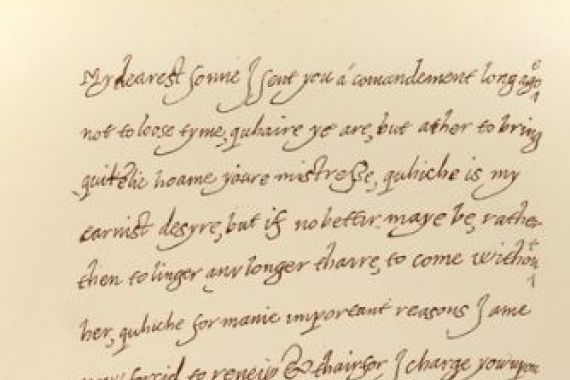 My dearest sonne I sent you a comandement long ago
not to loose tyme, quhaire ye are, but ather to bring
quikelie hoame youre mistresse, quhiche is my
earnist desyre, but if no bettir maye be, rather
then to linger any longer thaire, to come without
her, quhiche for manie important reasons I ame
now forcid to reneiu & thairfor I charge you upon